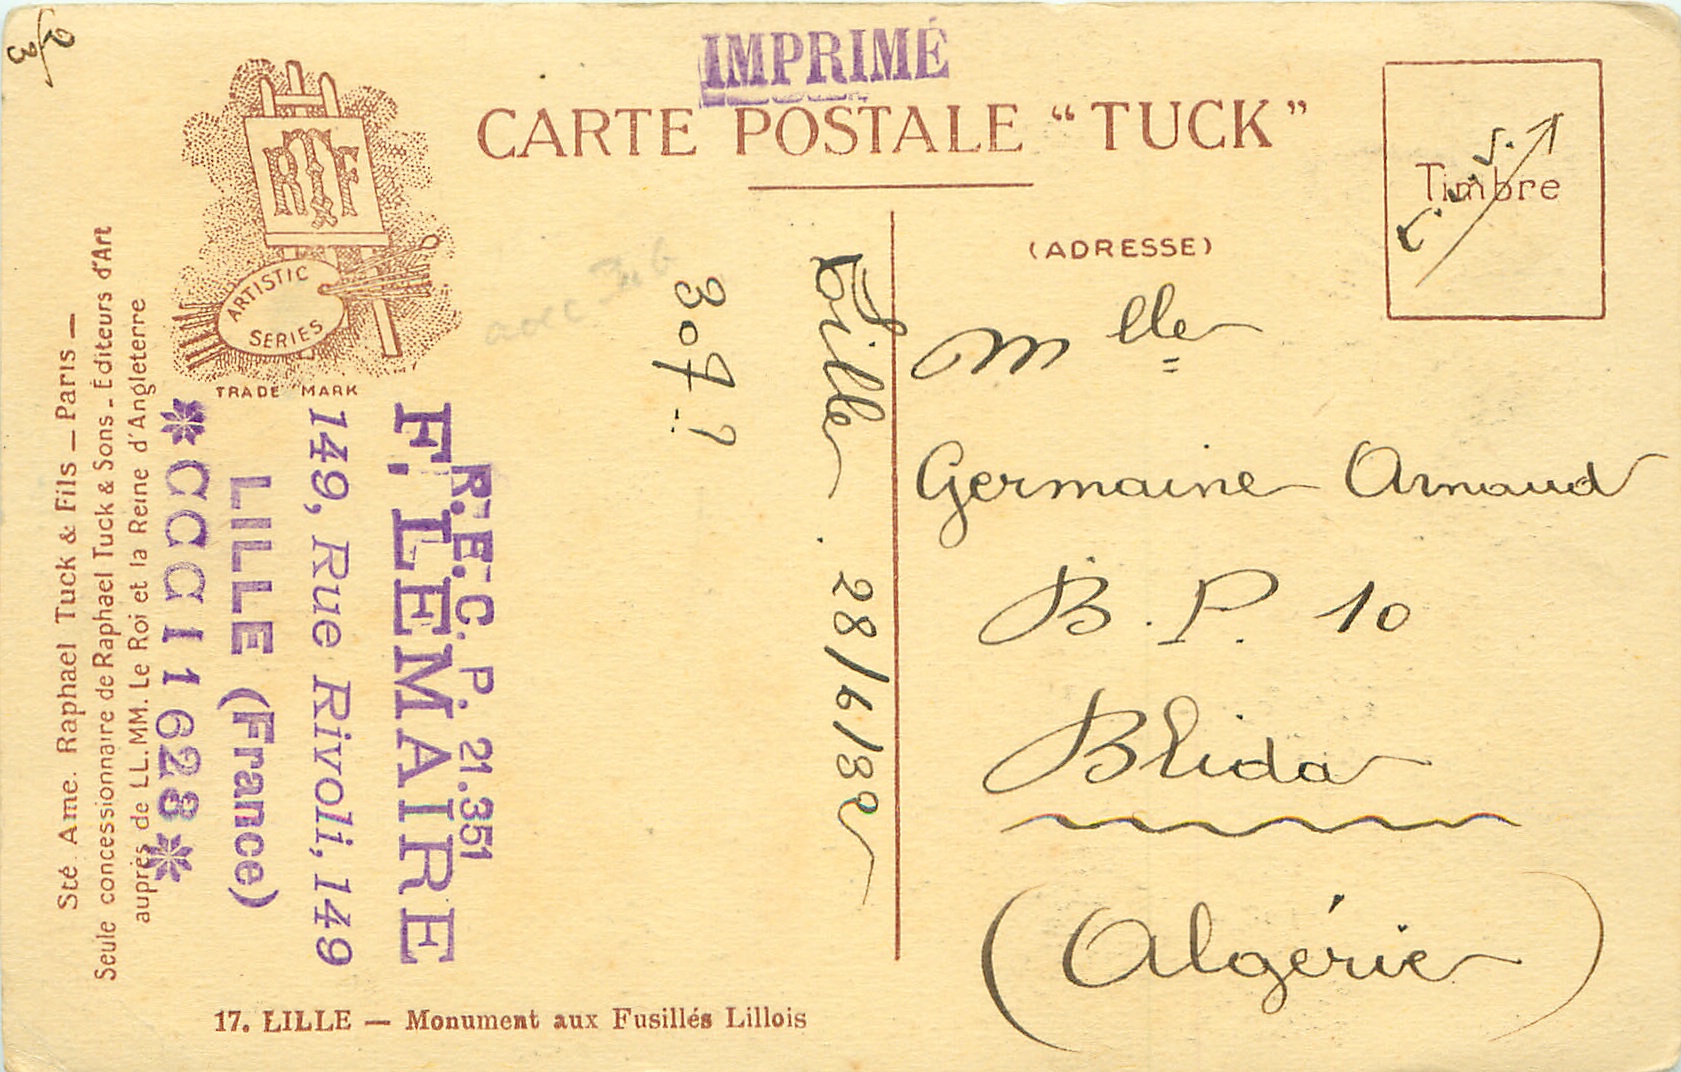 IMPRIMÉ
CARTE POSTALE “TUCK”
Timbre
T.C.V.
(ADRESSE)
RTF
ARTISTIC
SERIES
TRADE MARK
Sté. Ame. Raphael Tuck & Fils — Paris —
Seule concessionnaire de Raphael Tuck & Sons - Éditeurs d'Art
auprès de LL.MM. Le Roi et la Reine d'Angleterre
R.E.C. P. 21.351
F. LEMAIRE
149, Rue Rivoli, 149
LILLE (France)
*CCC I 1628*
Lille. 28/6/32
Mlle
Germaine Arnaud
B.P. 10
Blida
(Algérie)
17. LILLE — Monument aux Fusillés Lillois